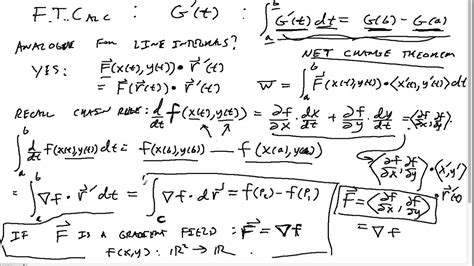 F.T.Calc : G'(t) : ∫_a^b G'(t) dt = G(b) - G(a)
ANALOGUE FOR LINE INTEGRALS?
NET CHANGE THEOREM
YES: F⃗(x(t),y(t)) • r⃗'(t)
= F⃗(r⃗(t)) • r⃗'(t)
W = ∫_a^b F⃗(x(t),y(t)) • <x'(t), y'(t)> dt
RECALL CHAIN RULE: d/dt f(x(t),y(t)) = ∂f/∂x · dx/dt + ∂f/∂y · dy/dt = <∂f/∂x, ∂f/∂y>
• <x', y'>
∫_a^b d/dt f(x(t),y(t)) dt = f(x(b),y(b)) - f(x(a),y(a))
<∂f/∂x, ∂f/∂y> • r⃗'(t)
= ∫_a^b ∇f • r⃗' dt = ∫_C ∇f • dr⃗ = f(P₂) - f(P₁)
F⃗ = <∂f/∂x, ∂f/∂y>
= ∇f
IF F⃗ IS A GRADIENT FIELD : F⃗ = ∇f
f(x,y): ℝ² → ℝ